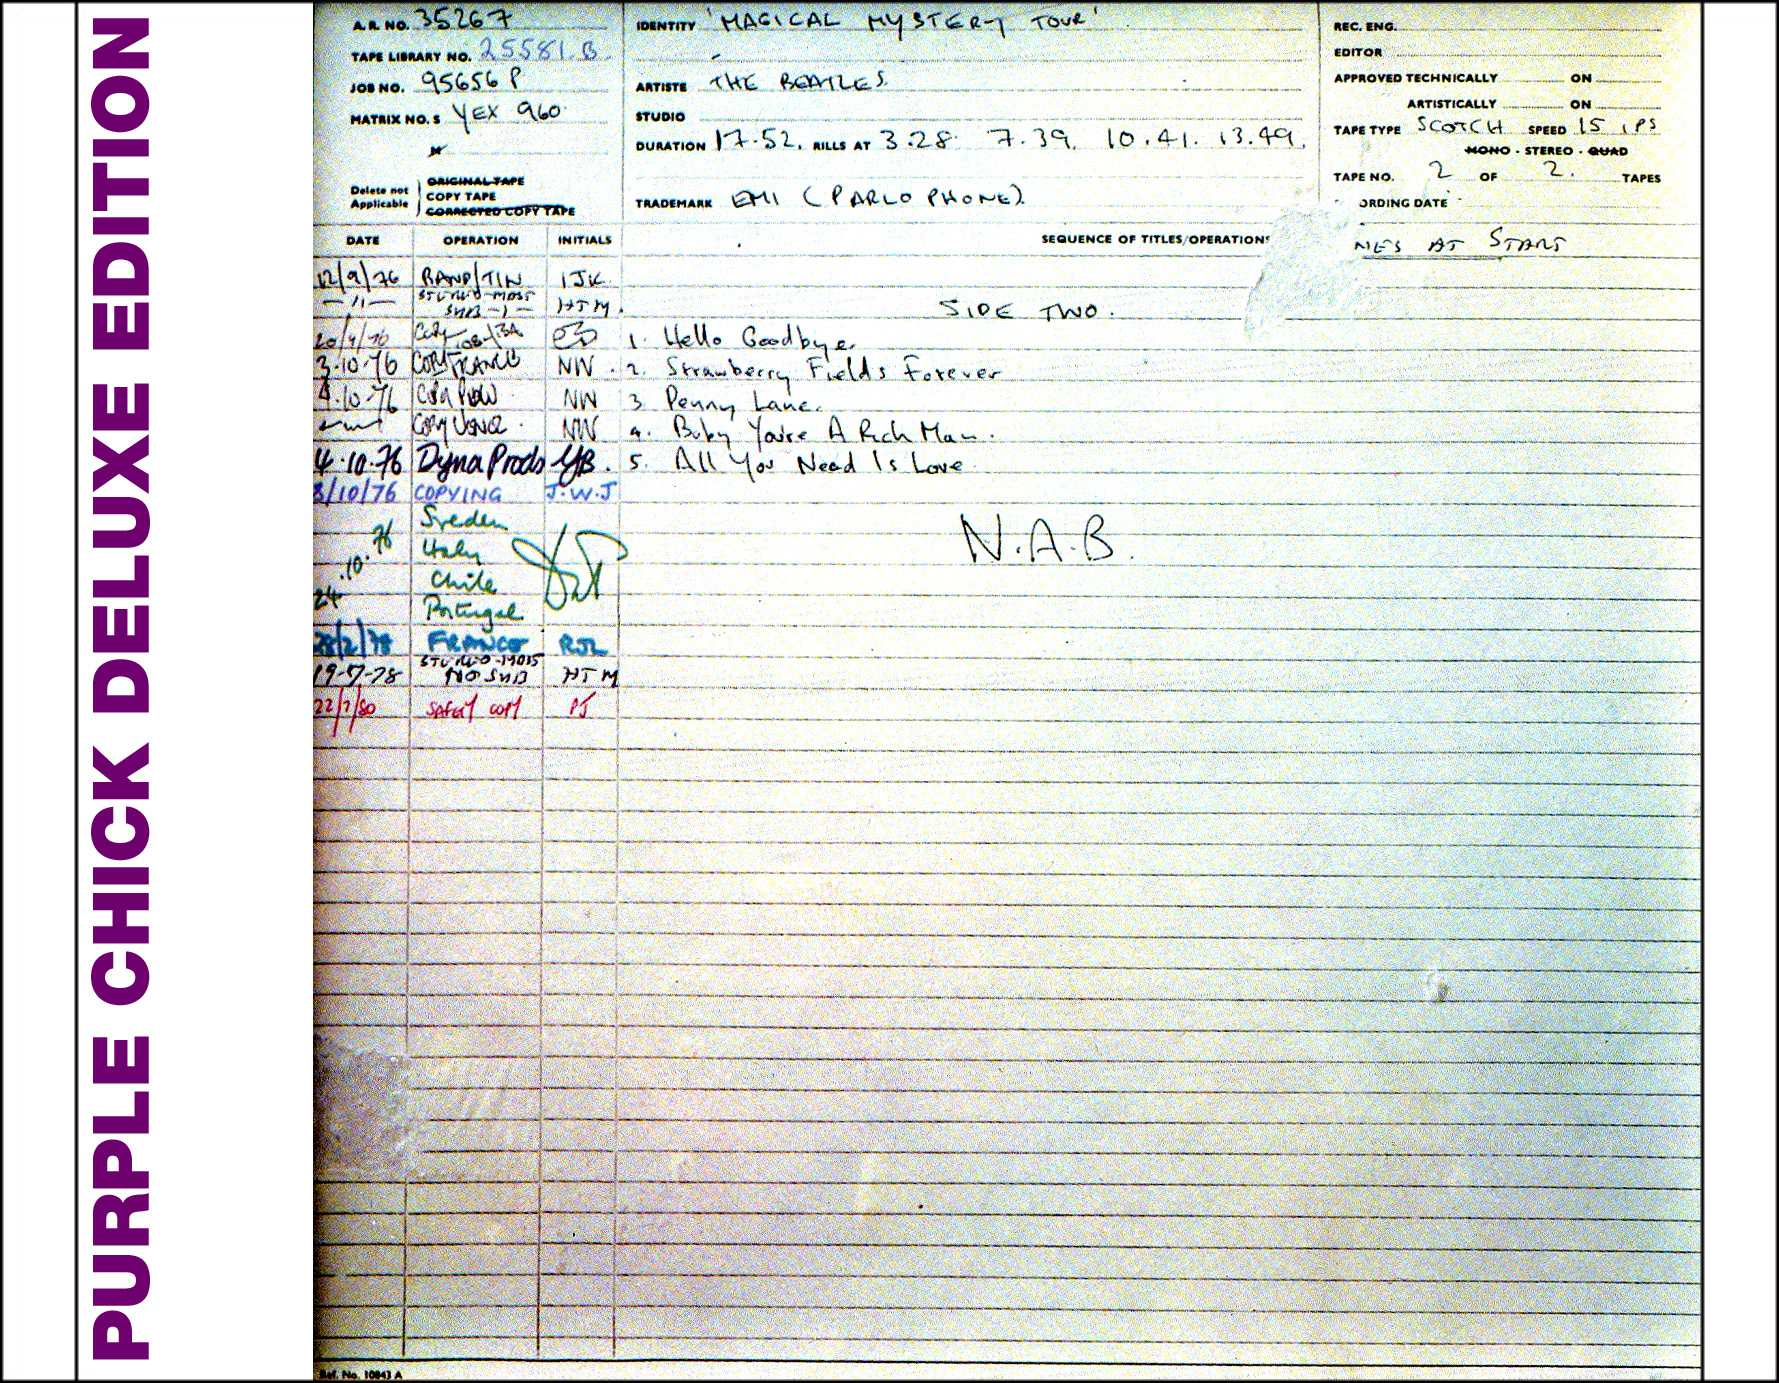 PURPLE CHICK DELUXE EDITION
A.R. NO. 35267
TAPE LIBRARY NO. 25581.B
JOB NO. 95656 P
MATRIX NO.S YEX 960
Delete not Applicable
ORIGINAL TAPE
COPY TAPE
CORRECTED COPY TAPE
IDENTITY 'MAGICAL MYSTERY TOUR'
ARTISTE THE BEATLES.
STUDIO
DURATION 17.52. RILLS AT 3.28. 7.39. 10.41. 13.49.
TRADEMARK EMI (PARLOPHONE)
REC. ENG.
EDITOR
APPROVED TECHNICALLY ON
ARTISTICALLY ON
TAPE TYPE SCOTCH SPEED 15 IPS
MONO - STEREO - QUAD
TAPE NO. 2 OF 2. TAPES
ORDING DATE
DATE OPERATION INITIALS SEQUENCE OF TITLES/OPERATIONS NES AT START
12/9/76 BAND/TIN IJK
HTM.
SIDE TWO.
20/9/76 COPY
1. Hello Goodbye.
3.10.76 COPY FRANCE NW. 2. Strawberry Fields Forever
4.10.76 COPY NW 3. Penny Lane.
COPY NW 4. Baby You're A Rich Man.
4.10.76 Dyna Prods YB. 5. All You Need Is Love
8/10/76 COPYING J.W.J
24.10.76 Sweden
Italy
Chile
Portugal
N.A.B.
28/2/78 FRANCE RJL
19-7-78 NO SUB HTM
22/7/80 SAFETY COPY PJ
Ref. No. 10843 A